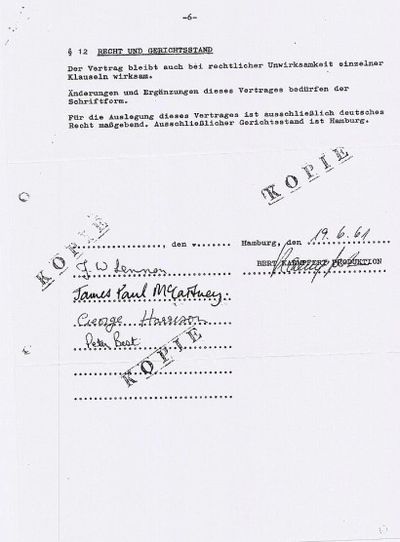 -6-
§ 12 RECHT UND GERICHTSSTAND
Der Vertrag bleibt auch bei rechtlicher Unwirksamkeit einzelner
Klauseln wirksam.
Änderungen und Ergänzungen dieses Vertrages bedürfen der
Schriftform.
Für die Auslegung dieses Vertrages ist ausschließlich deutsches
Recht maßgebend. Ausschließlicher Gerichtsstand ist Hamburg.
KOPIE
KOPIE
, den
Hamburg, den 19.6.61
J W Lennon
BERT KAEMPFERT PRODUKTION
James Paul McCartney
George Harrison
Peter Best
KOPIE